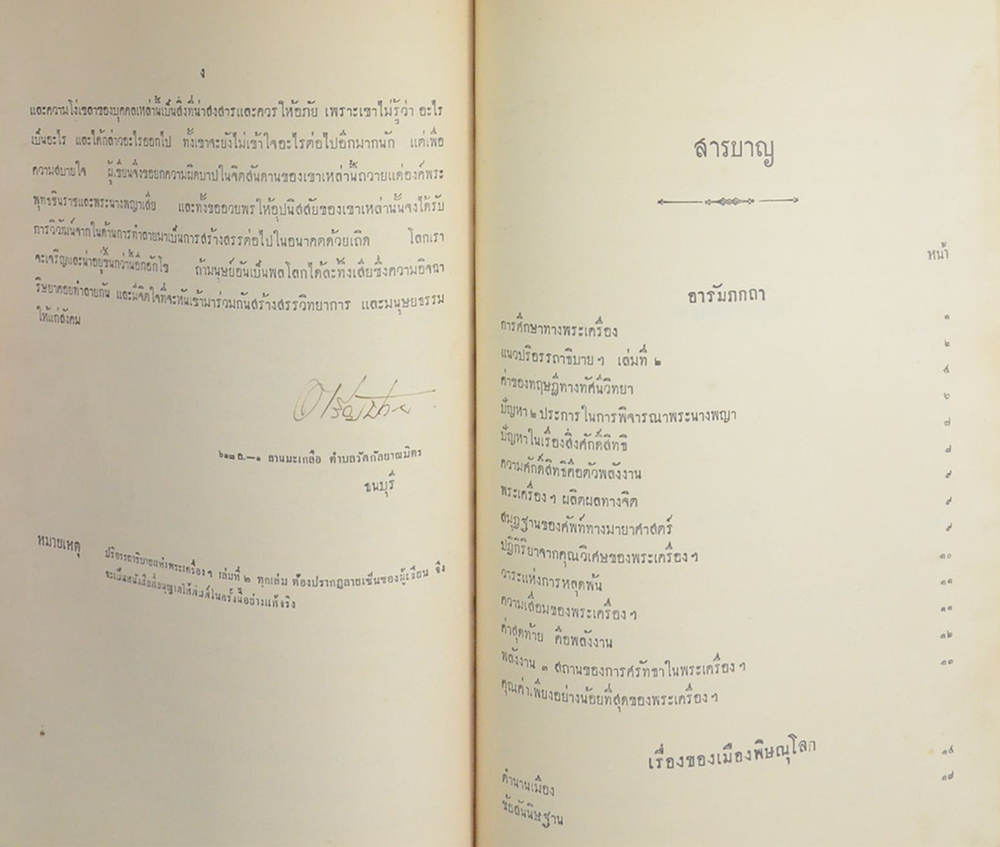 ง
และความโง่เขลาของบุคคลเหล่านั้นเป็นสิ่งที่น่าสงสารและควรให้อภัย เพราะเขาไม่รู้ว่า อะไร
เป็นอะไร และได้กล่าวอะไรออกไป ทั้งเขาจะยังไม่เข้าใจอะไรต่อไปอีกมากนัก แต่เพื่อ
ความสบายใจ ผู้เขียนจึงขอยกความผิดบาปในจิตสันดานของเขาเหล่านี้ถวายแด่องค์พระ
พุทธชินราชและพระนางพญาเสีย และทั้งขออวยพรให้อุปนิสสัยของเขาเหล่านั้นจงได้รับ
การวิวัฒน์จากในด้านการทำลายมาเป็นการสร้างสรรต่อไปในอนาคตด้วยเถิด โลกเรา
จะเจริญและน่าอยู่ขึ้นกว่านี้อีกอักโข ถ้ามนุษย์อันเป็นพลโลกได้ละทิ้งเสียซึ่งความอิจฉา
ริษยาคอยทำลายกัน และมีจิตใจที่จะหันเข้ามาร่วมกันสร้างสรรวิทยาการ และมนุษยธรรม
ให้แก่สังคม
ลานมะเกลือ ตำบลวัดกัลยาณมิตร
ธนบุรี
หมายเหตุ ปริอรรถาธิบายแห่งพระเครื่อง ฯ เล่มที่ ๒ ทุกเล่ม ต้องปรากฏลายเซ็นของผู้เขียน จึง
จะเป็นหนังสือที่อนุญาตให้พิมพ์ในครั้งนี้อย่างแท้จริง
สารบาญ
หน้า
อารัมภกถา
การศึกษาทางพระเครื่อง ๑
แนวปริอรรถาธิบาย ฯ เล่มที่ ๒ ๒
ค่าของทฤษฎีทางทัศนีวิทยา ๕
ปัญหา ๒ ประการในการพิจารณาพระนางพญา ๖
ปัญหาในเรื่องสิ่งศักดิ์สิทธิ ๗
ความศักดิ์สิทธิคือตัวพลังงาน ๘
พระเครื่อง ฯ ผลิตผลทางจิต ๙
สมุฏฐานของศัพท์ทางมายาศาสตร์ ๙
ปฏิกิริยาจากคุณวิเศษของพระเครื่อง ฯ ๙
วาระแห่งการหลุดพ้น ๑๐
ความเสื่อมของพระเครื่อง ฯ ๑๑
ค่าสุดท้าย คือพลังงาน ๑๑
พลังงาน ๓ สถานของการศรัทธาในพระเครื่อง ฯ ๑๒
คุณค่าเพียงอย่างน้อยที่สุดของพระเครื่อง ฯ ๑๓
เรื่องของเมืองพิษณุโลก
ตำนานเมือง ๑๕
ข้อสันนิษฐาน ๑๗